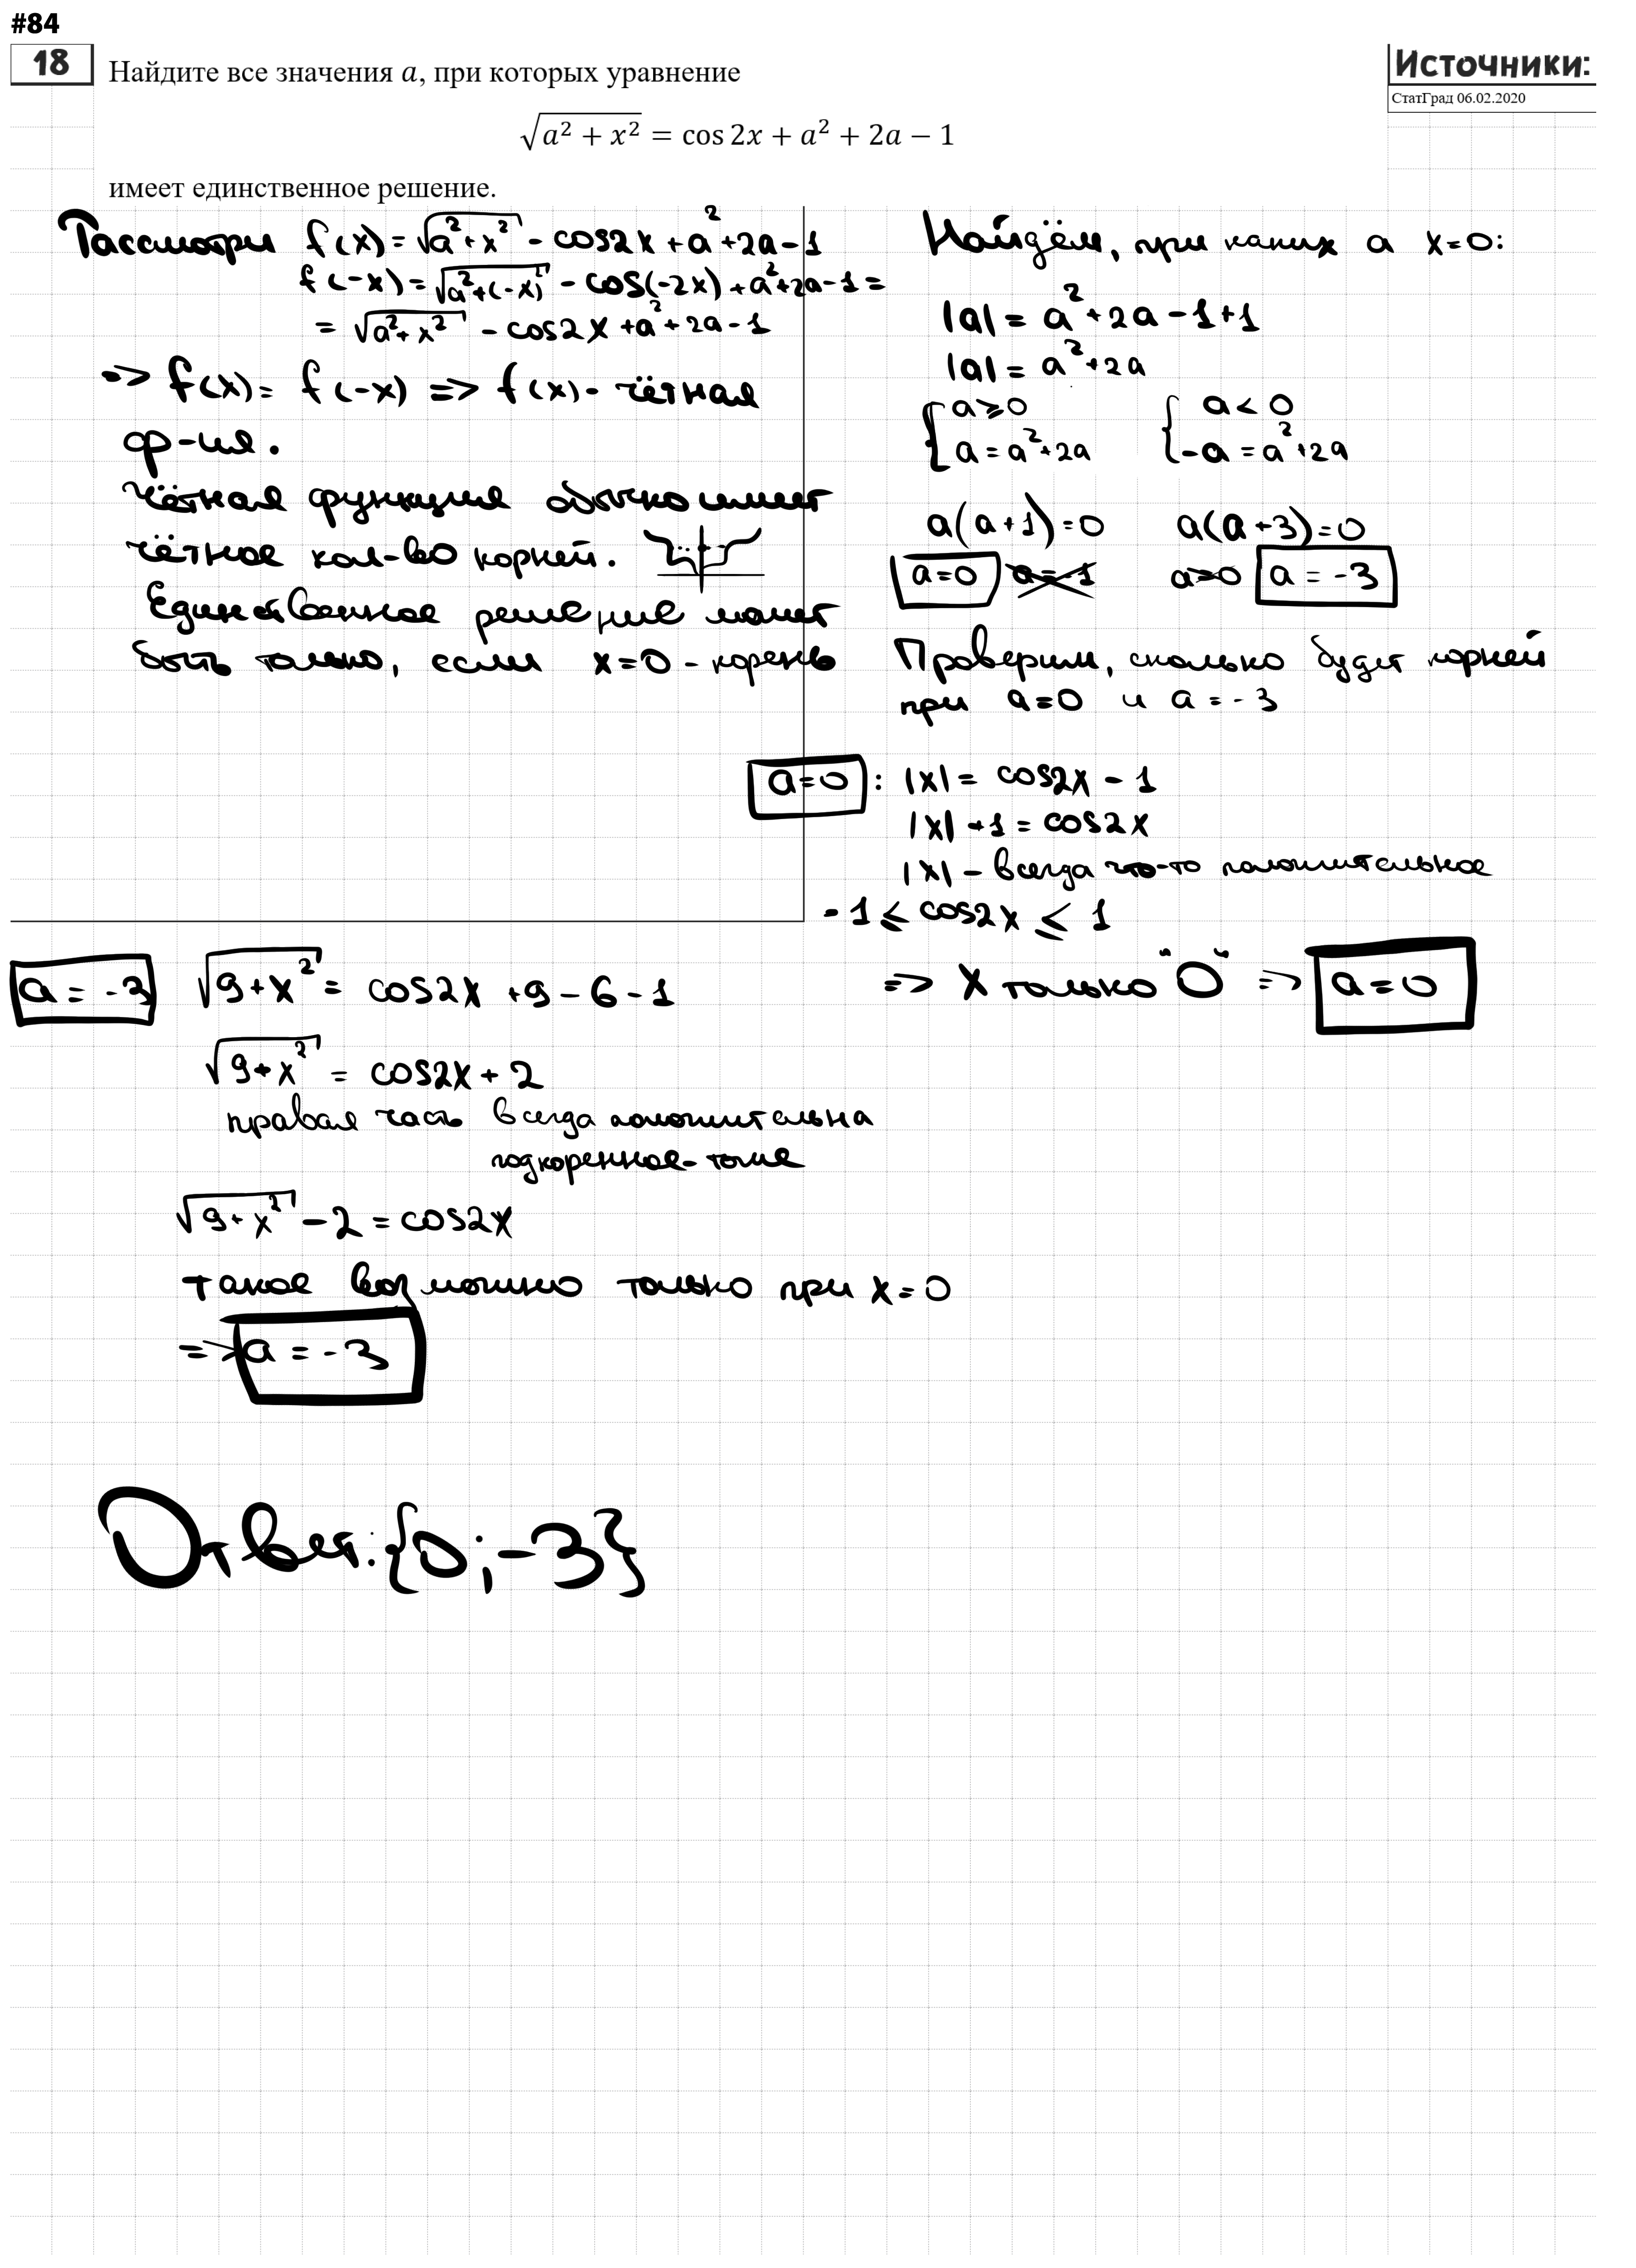 #84
18
Источники:
СтатГрад 06.02.2020
Найдите все значения a, при которых уравнение
√(a² + x²) = cos 2x + a² + 2a − 1
имеет единственное решение.
Рассмотри f(x) = √(a²+x²) - cos2x + a²+2a-1
f(-x) = √(a²+(-x)²) - cos(-2x) + a²+2a-1 =
= √(a²+x²) - cos2x + a²+2a-1
=> f(x) = f(-x) => f(x) - чётная
ф-ия.
Чётная функция обычно имеет
чётное кол-во корней.
Единственное решение может
быть только, если x=0 - корень
Найдём, при каких a x=0:
|a| = a²+2a-1+1
|a| = a²+2a
{ a⩾0 { a < 0
a = a²+2a -a = a²+2a
a(a+1)=0 a(a+3)=0
a=0 a=-1 a=0 a = -3
Проверим, сколько будет корней
при a=0 и a = -3
a=0 : |x| = cos2x - 1
|x| + 1 = cos2x
|x| - всегда что-то положительное
-1 ⩽ cos2x ⩽ 1
=> x только "0" => a=0
a = -3 √(9+x²) = cos2x + 9 - 6 - 1
√(9+x²) = cos2x + 2
правая часть всегда положительна
подкоренное-тоже
√(9+x²) - 2 = cos2x
такое возможно только при x=0
=> a = -3
Ответ: {0; -3}